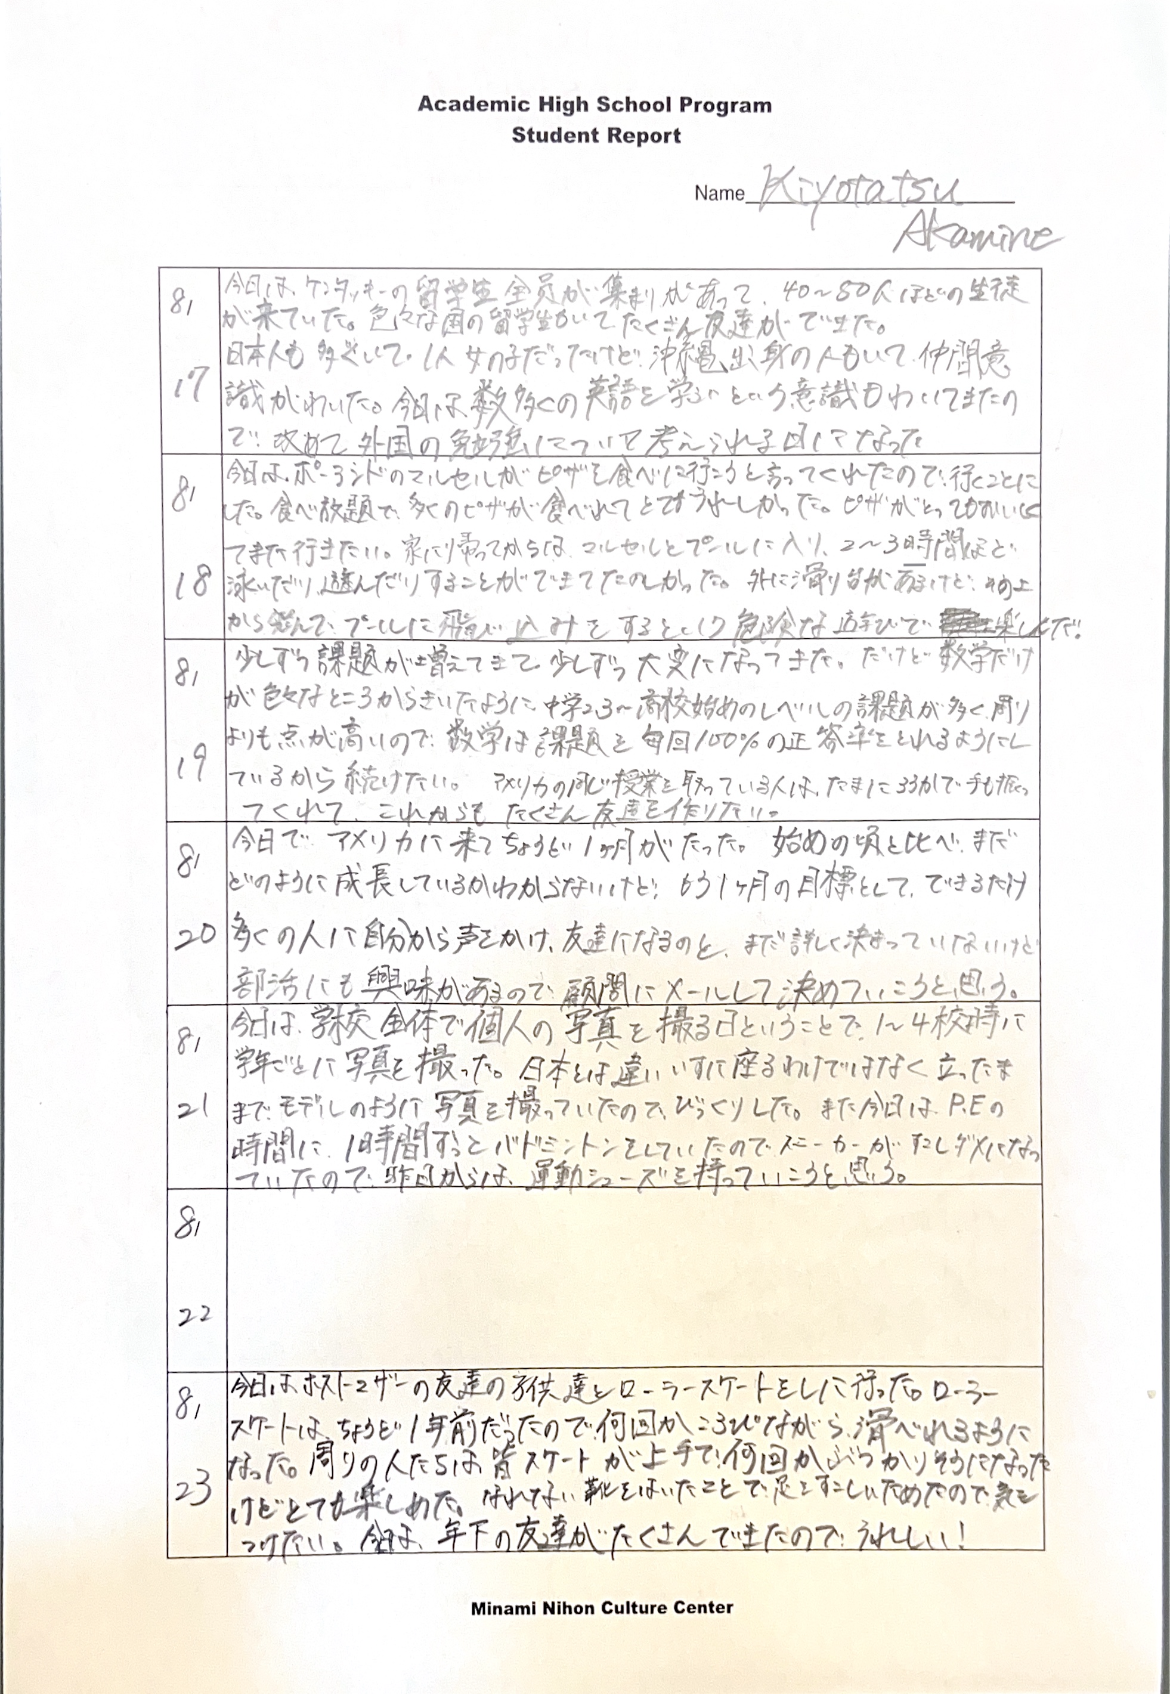 Academic High School Program
Student Report
Name Kiyotatsu
Akamine
8/17
今日は、ケンタッキーの留学生全員が集まりがあって、40〜50人ほどの生徒
が来ていた。色々な国の留学生がいてたくさん友達ができた。
日本人も多くいて、1人女の子だったけど、沖縄出身の人もいて、仲間意
識がわいた。今日は、数多くの英語を学ぶという意識もわいてきたの
で、改めて外国の勉強について考えられる日になった
8/18
今日は、ポーランドのマルセルがピザを食べに行こうと言ってくれたので、行くことに
した。食べ放題で、多くのピザが食べれてとてもうれしかった。ピザがとってもおいしく
てまた行きたい。家に帰ってからは、マルセルとプールに入り、2〜3時間ほど
泳いだり、遊んだりすることができてたのしかった。外に滑り台があるけど、その上
から飛んで、プールに飛び込みをするという危険な遊びで楽しんだ!
8/19
少しずつ課題が増えてきて、少しずつ大変になってきた。だけど数学だけ
が色々なところからきいたように、中学2,3〜高校始めのレベルの課題が多く、周り
よりも点が高いので、数学は課題を毎回100%の正答率をとれるようにし
ているから続けたい。アメリカの同じ授業を取っている人は、たまにろうかで手も振っ
てくれて、これからもたくさん友達を作りたい。
8/20
今日で、アメリカに来てちょうど1ヶ月がたった。始めの頃と比べ、まだ
どのように成長しているかわからないけど、もう1ヶ月の目標として、できるだけ
多くの人に自分から声をかけ、友達になるのと、まだ詳しく決まっていないけど
部活にも興味があるので、顧問にメールして決めていこうと思う。
8/21
今日は、学校全体で個人の写真を撮る日ということで、1〜4校時に
学年ごとに写真を撮った。日本とは違い、いすに座るわけではなく立ったま
まで、モデルのように写真を撮っていたので、びっくりした。また今日は、P.Eの
時間に、1時間ずっとバドミントンをしていたので、スニーカーがすこしダメになっ
ていたので、昨日からは、運動シューズを持っていこうと思う。
8/22
8/23
今日は、ホストマザーの友達の子供達とローラースケートをしに行った。ローラー
スケートは、ちょうど1年前だったので、何回かころびながら、滑べれるように
なった。周りの人たちは皆スケートが上手で、何回かぶつかりそうになった
けどとても楽しめた。なれてない靴をはいたことで、足をすこしいためたので、気を
つけたい。今日は、年下の友達がたくさんできたので、うれしい!
Minami Nihon Culture Center